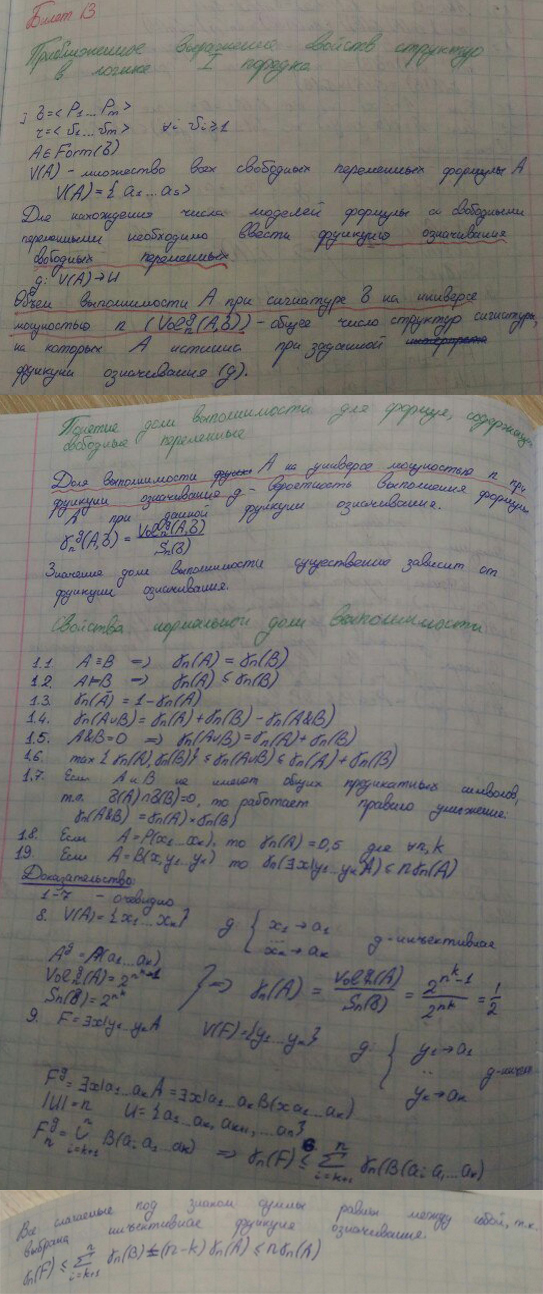 Билет 13
Приближенное выражение свойств структур
в логике I порядка
] б=<P₁...Pₘ>
τ=<υ₁...υₘ> ∀i υᵢ≥1
A∈Form(б)
V(A) - множество всех свободных переменных формулы A
V(A)={a₁...aₛ>
Для нахождения числа моделей формулы со свободными
переменными необходимо ввести функцию означивания
свободных переменных
g: V(A)→U
Объем выполнимости A при сигнатуре б на универсе
мощностью n (Volₙᵍ(A,б)) - общее число структур сигнатуры,
на которых A истинна при заданной
функции означивания (g).
Понятие доли выполнимости для формул, содержащ.
свободные переменные
Доля выполнимости A на универсе мощностью n при
функции означивания g - вероятность выполнения формулы
A при данной функции означивания.
γₙᵍ(A,б) = Volₙᵍ(A,б) / Sₙ(б)
Значение доли выполнимости существенно зависит от
функции означивания.
Свойства нормальной доли выполнимости
1.1 A≡B => γₙ(A) = γₙ(B)
1.2. A⊨B => γₙ(A) ≤ γₙ(B)
1.3. γₙ(Ā) = 1-γₙ(A)
1.4. γₙ(A∪B) = γₙ(A)+γₙ(B) - γₙ(A&B)
1.5. A&B=0 => γₙ(A∪B) = γₙ(A)+γₙ(B)
1.6. max{γₙ(A),γₙ(B)} ≤ γₙ(A∪B) ≤ γₙ(A)+γₙ(B)
1.7. Если A и B не имеют общих предикатных символов,
т.л. б(A)∩б(B)=0, то работает правило умножения:
γₙ(A&B) = γₙ(A)*γₙ(B)
1.8. Если A=P(x₁...xₖ), то γₙ(A)=0,5 для ∀n,k
1.9. Если A=B(x,y₁...yₖ) то γₙ(∃x|y₁...yₖA) ≤ nγₙ(A)
Доказательство:
1-7 - очевидно
8. V(A)={x₁...xₖ} g { x₁→a₁ ... xₖ→aₖ g-инъективная
Aᵍ=A(a₁...aₖ)
Volₙᵍ(A)=2^(nᵏ-1)
Sₙ(б)=2^(nᵏ) } => γₙ(A) = Volₙᵍ(A) / Sₙ(б) = 2^(nᵏ-1) / 2^(nᵏ) = 1/2
9. F=∃x|y₁...yₖA V(F)={y₁...yₖ} g: { y₁→a₁ ... yₖ→aₖ g-инъек
Fᵍ=∃x|a₁...aₖA=∃x|a₁...aₖB(xa₁...aₖ)
|U|=n U={a₁...aₖ,aₖ₊₁,...aₙ}
Fₙᵍ=∪ⁿᵢ₌ₖ₊₁ B(aᵢa₁...aₖ) => γₙ(F) ≤ Σⁿᵢ₌ₖ₊₁ γₙ(B(aᵢa₁...aₖ)
Все слагаемые под знаком суммы равны между собой, т.к.
выбрана инъективная функция означивания.
γₙ(F) ≤ Σⁿᵢ₌ₖ₊₁ γₙ(B) ≤ (n-k)γₙ(A) ≤ nγₙ(A)